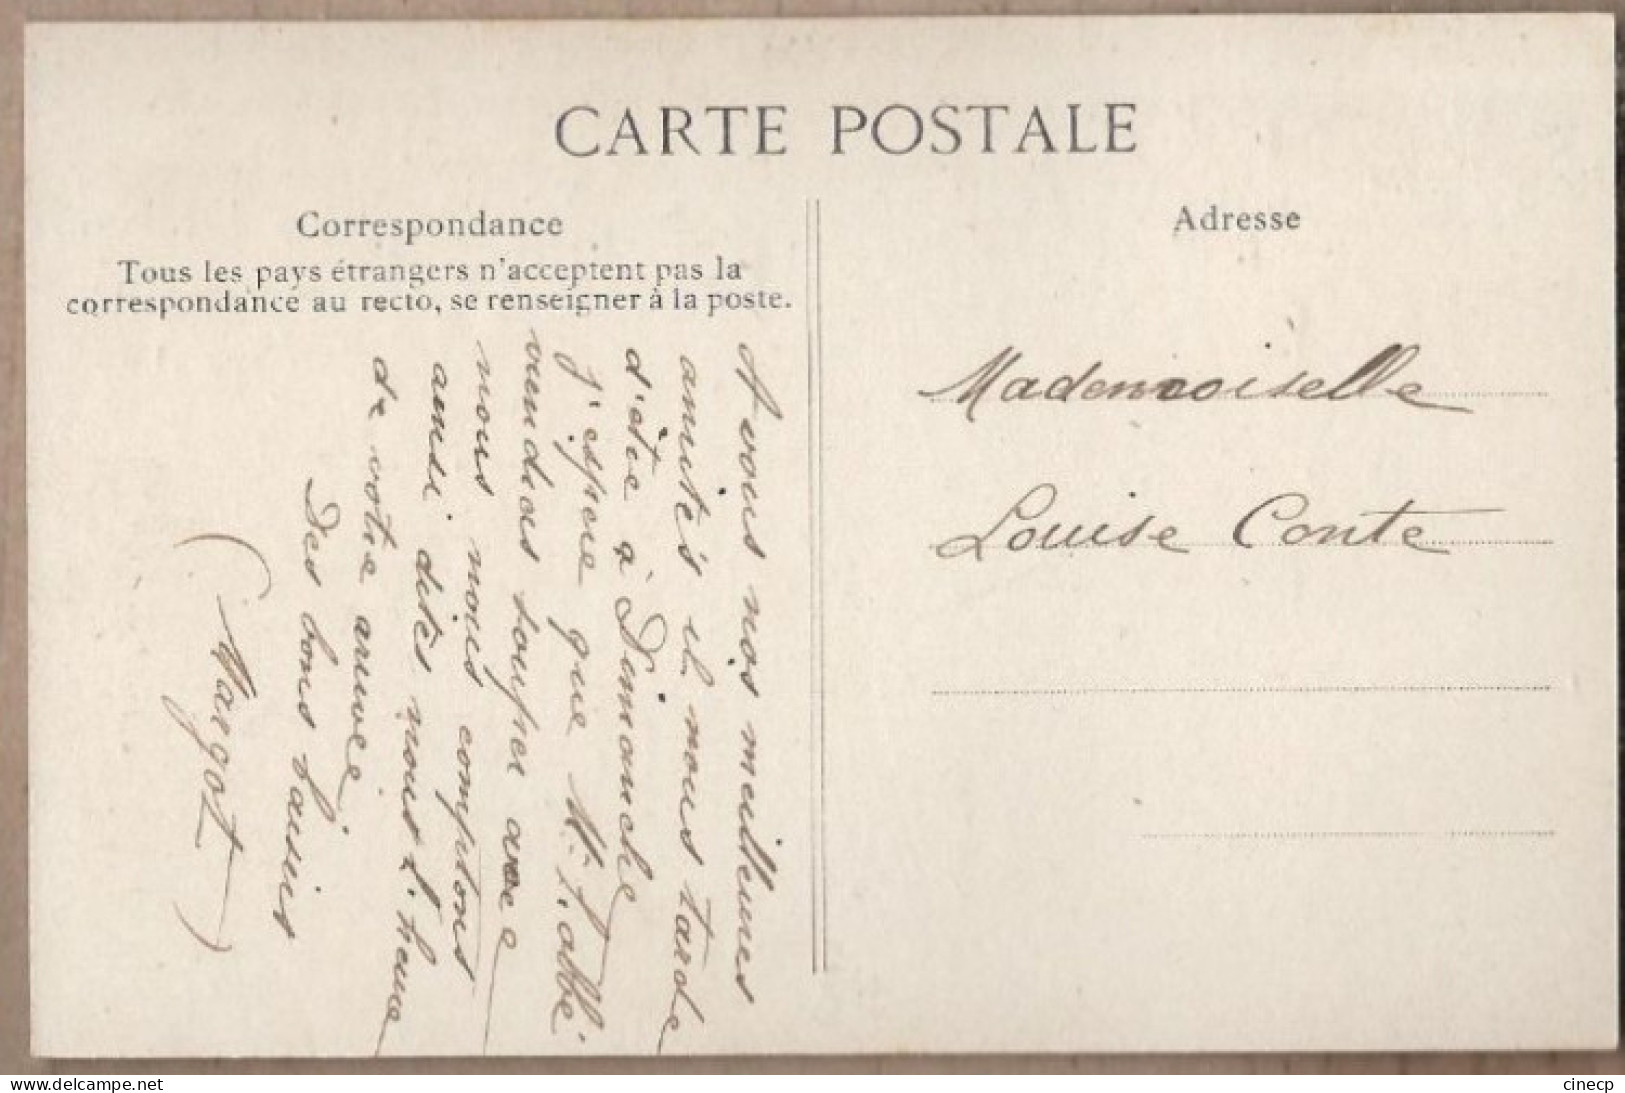 CARTE POSTALE
Correspondance
Tous les pays étrangers n'acceptent pas la
correspondance au recto, se renseigner à la poste.
A vous nos meilleures
amitiés il nous tarde
d'être à Dimanche
j'espère que Mr l'abbé
viendras souper avec
nous nous comptons
ainsi dites nous l'heure
de votre arrivée
Des bons baisers
(Margot)
Adresse
Mademoiselle
Louise Conte
www.delcampe.net
cinecp